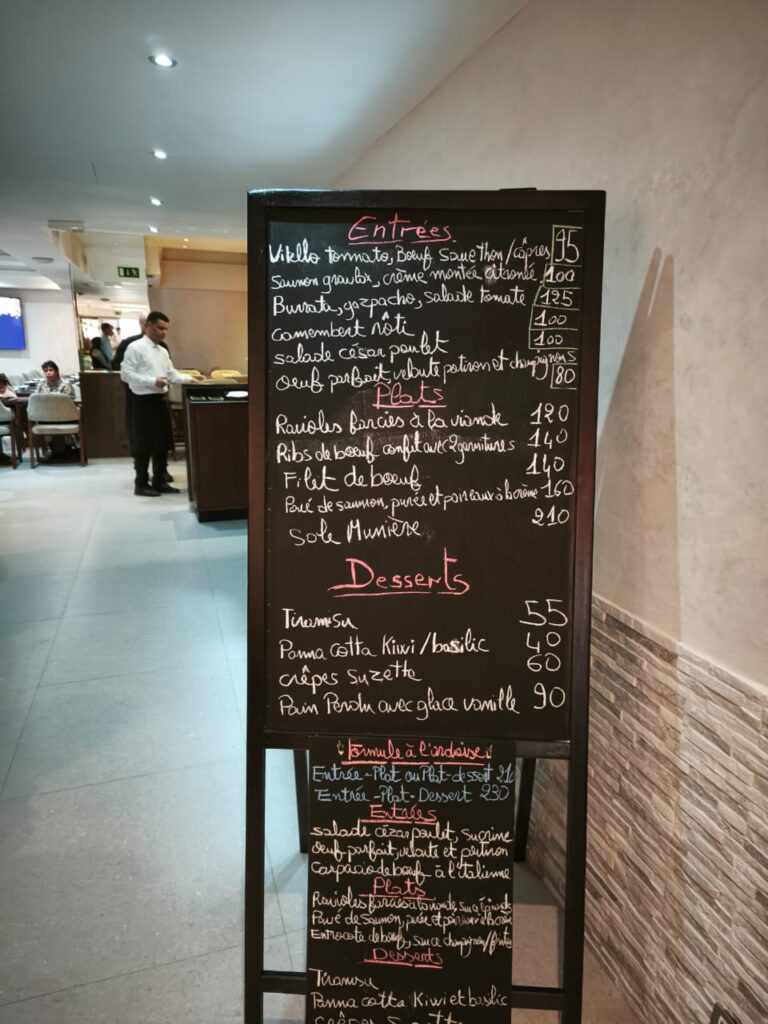 Entrées
Vitello tommato, Boeuf sauce thon/câpres 95
saumon gravlax, crème montée citronée. 100
Burrata, gazpacho, salade tomate 125
Camembert rôti 100
salade césar poulet 100
oeuf parfait, velouté potiron et champignons 80
Plats
Ravioles farcies à la viande 120
Ribs de boeuf confit avec 2 garnitures 140
Filet de boeuf 140
Pavé de saumon, purée et poireaux à la crème 160
Sole Munière 210
Desserts
Tiramisu 55
Panna cotta Kiwi/basilic 40
crêpes suzette 60
Pain Perdu avec glace vanille 90
Formule à l'ardoise
Entrée-Plat ou Plat-dessert
Entrée-Plat-Dessert 230
Entrées
salade cézar poulet, sucrine
oeuf parfait, velouté et potiron
Carpacio de boeuf à l'italienne
Plats
Ravioles farcies à la viande, sauce
Pavé de saumon, purée et poireaux à la crème
Entrocote de boeuf, sauce champignon/frites
Desserts
Tiramisu
Panna cotta Kiwi et basilic
crêpes suzette